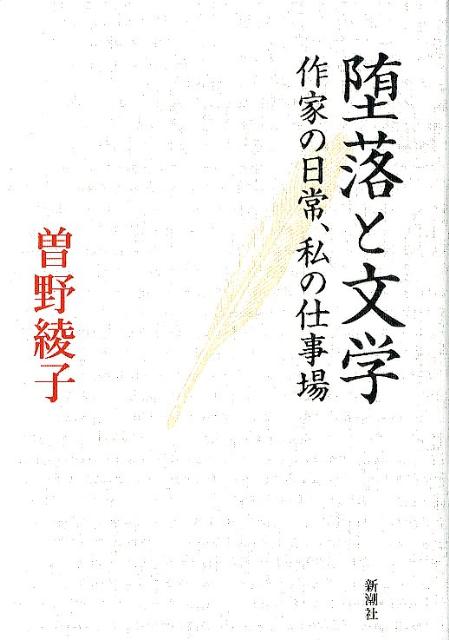 堕落と文学
作家の日常、私の仕事場
曽野綾子
新潮社